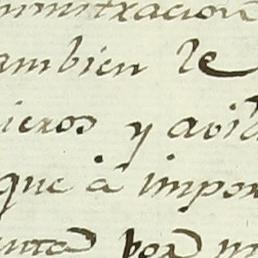 ministracion
ambien le
ieros y avi
que â impor
enta por m